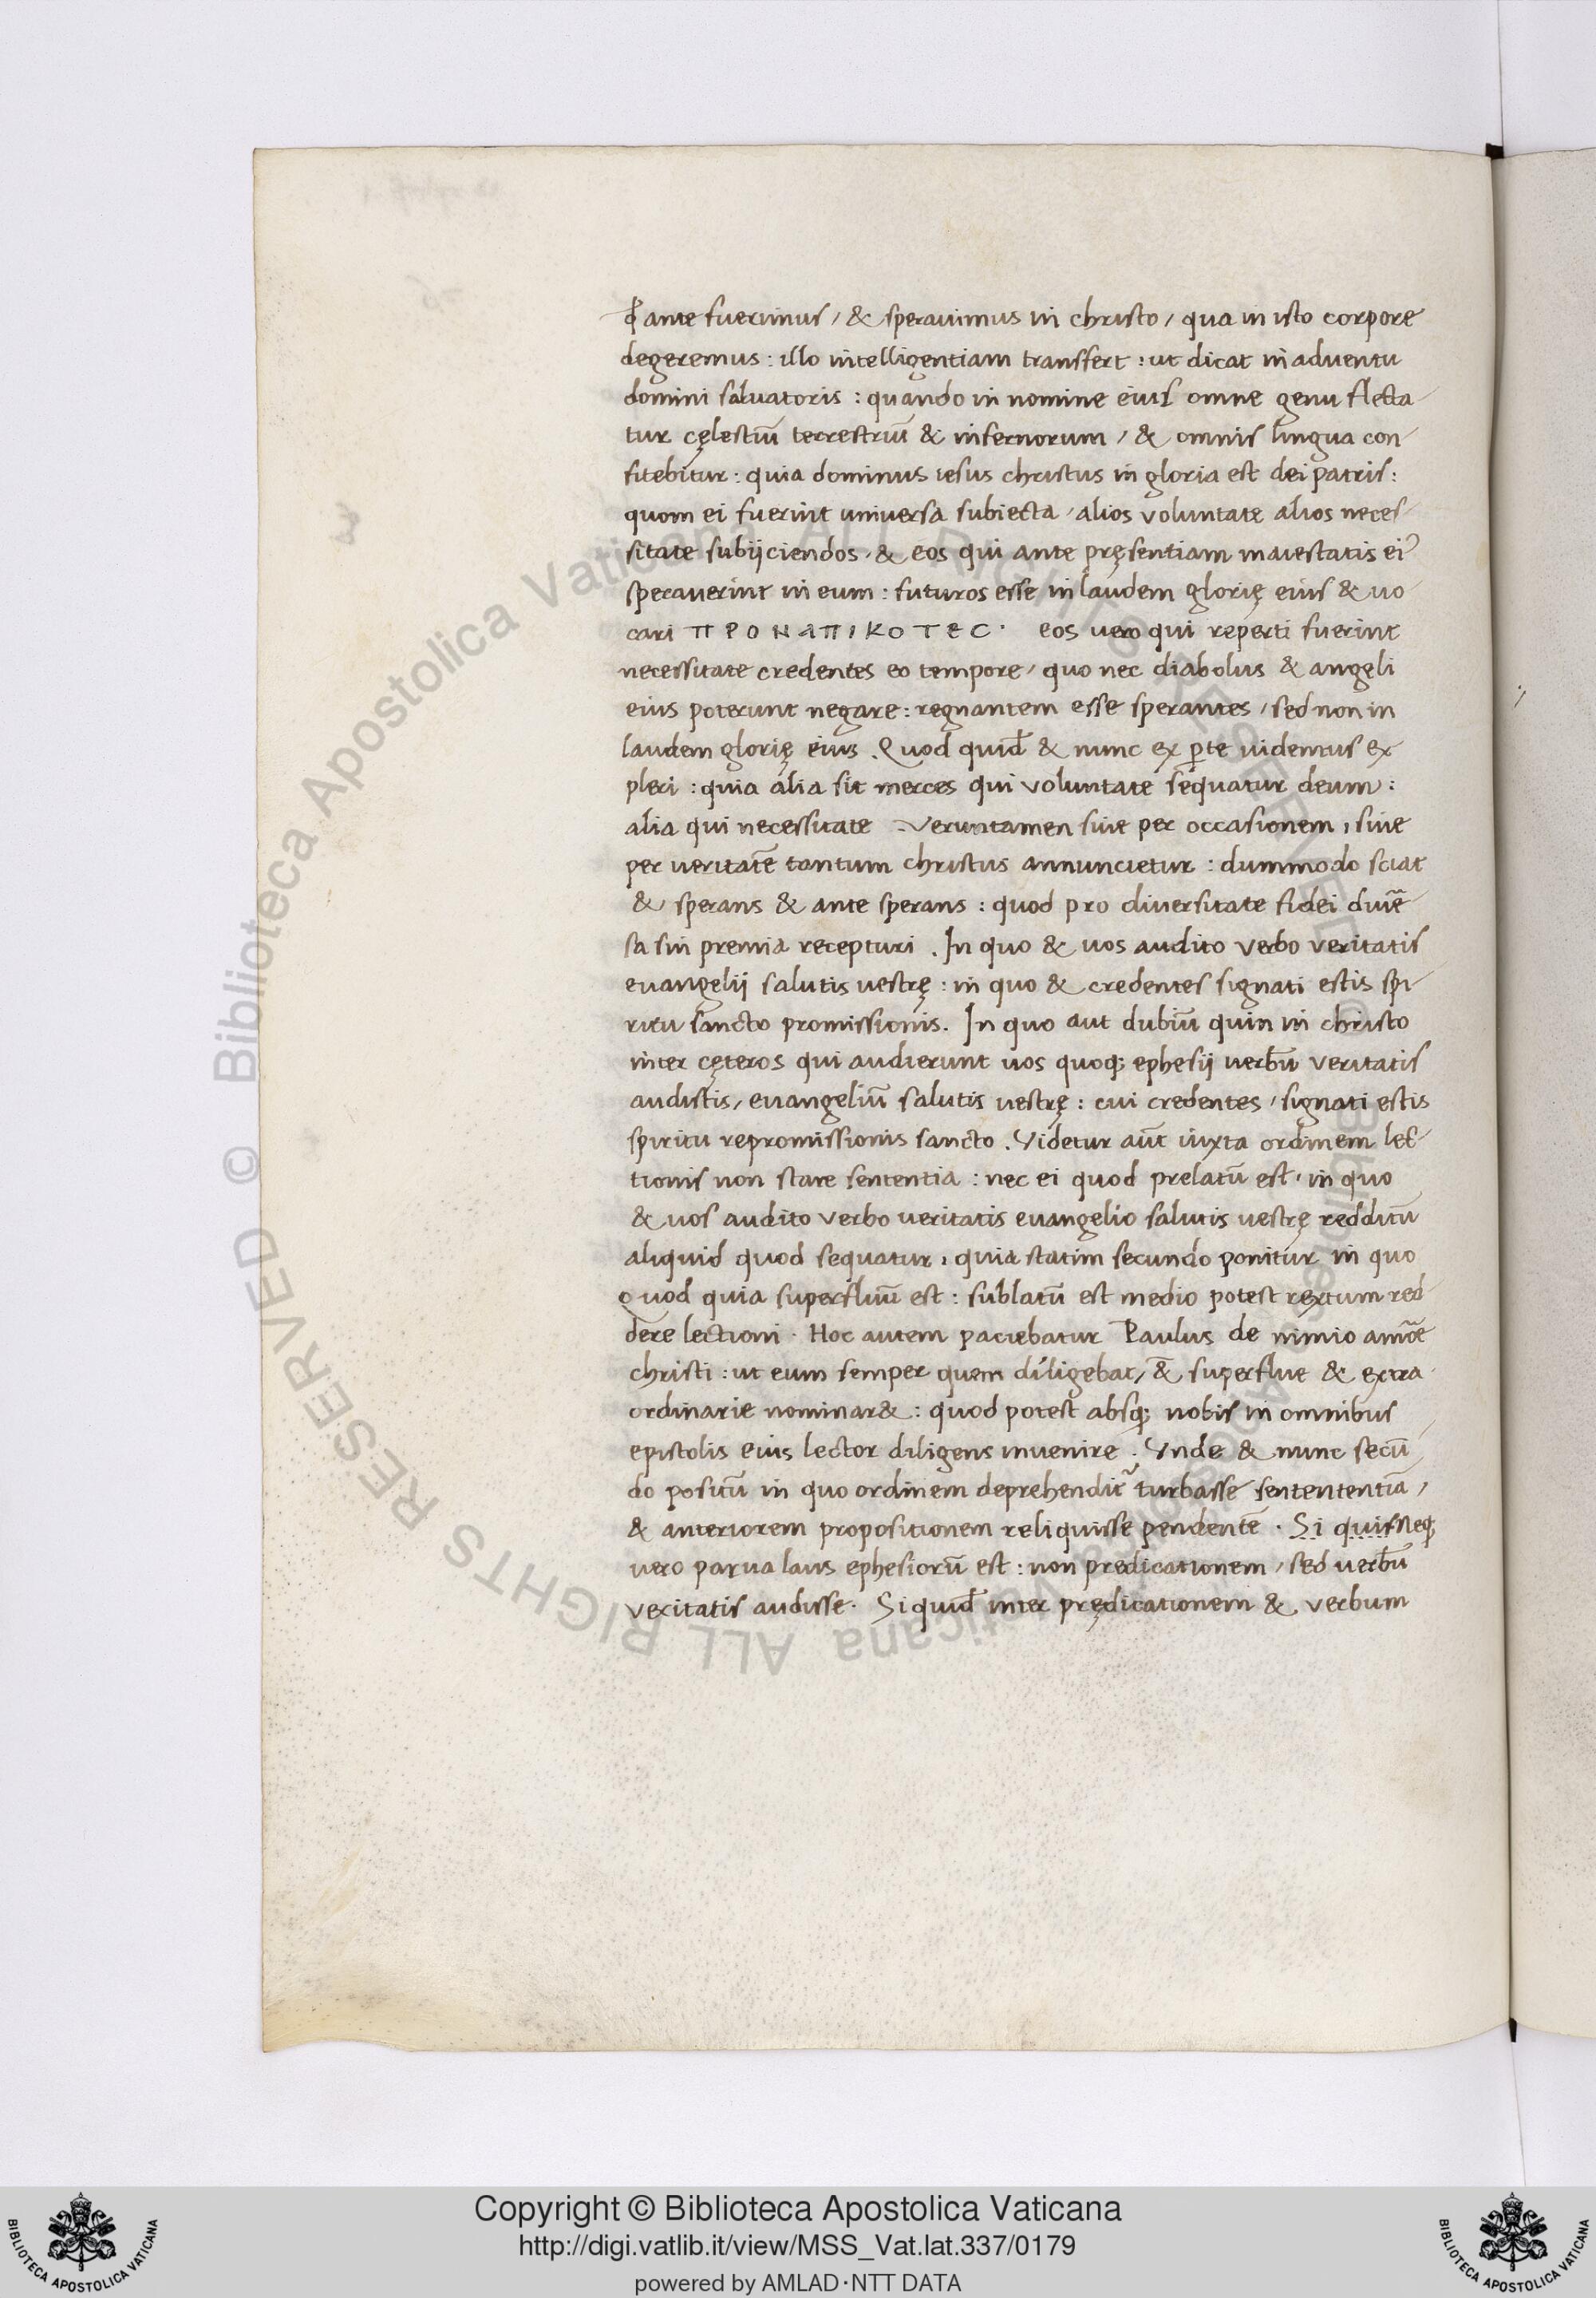 ꝙ ante fuerimus, & speravimus in christo, qua in isto corpore
degeremus: illo intelligentiam transfert: ut dicat in adventu
domini salvatoris: quando in nomine eius omne genu flecta-
tur cęlestiū terrestriū & infernorum, & omnis lingua con-
fitebitur: quia dominus iesus christus in gloria est dei patris:
quom ei fuerint universa subiecta, alios voluntate alios neces-
sitate subijciendos, & eos qui ante pręsentiam maiestatis eiꝰ
speraverint in eum: futuros esse in laudem glorię eius & uo-
cari ΠΡΟΝΑΠΙΚΟΤΕС. eos uero qui reperti fuerint
necessitate credentes eo tempore, quo nec diabolus & angeli
eius poterunt negare: regnantem esse sperantes, sed non in
laudem glorię eius. Quod quid̄ & nunc ex ꝑte uidemus ex
pleri: quia alia sit merces qui voluntate sequatur deum:
alia qui necessitate. Veruntamen sive per occasionem, sive
per veritatē tantum christus annuncietur: dummodo sciat
& sperans & ante sperans: quod pro diversitate fidei divē-
sa sin premia recepturi. In quo & uos audito verbo veritatis
evangelij salutis uestrę: in quo & credentes signati estis spi-
ritu sancto promissionis. In quo aut dubiū quin in christo
inter cęteros qui audierunt uos quoq; ephesij uerbū veritatis
audistis, evangeliū salutis uestrę: cui credentes, signati estis
spiritu repromissionis sancto. Videtur aūt iuxta ordinem lec-
tionis non stare sententia: nec ei quod prelatū est, in quo
& uos audito verbo ueritatis evangelio salutis uestrę redditū
aliquid quod sequatur, quia statim secundo ponitur in quo
Quod quia superfluū est: sublatū est medio potest rectum red-
dere lectioni. Hoc autem paciebatur Paulus de nimio amōe
christi: ut eum semper quem diligebat, & superflue & extra-
ordinarie nominar&: quod potest absq; nobis in omnibus
epistolis eius lector diligens invenire. Vnde & nunc secū-
do positū in quo ordinem deprehendit̃ turbasse sentententiā,
& anteriorem propositionem reliquisse pendentē. Si quis neq;
vero parva laus ephesiorū est: non predicationem, sed verbū
veritatis audisse. Si quid̄ inter prędicationem & verbum
© Biblioteca Apostolica Vaticana ALL RIGHTS RESERVED
Copyright © Biblioteca Apostolica Vaticana
http://digi.vatlib.it/view/MSS_Vat.lat.337/0179
powered by AMLAD·NTT DATA
BIBLIOTECA APOSTOLICA VATICANA
BIBLIOTECA APOSTOLICA VATICANA